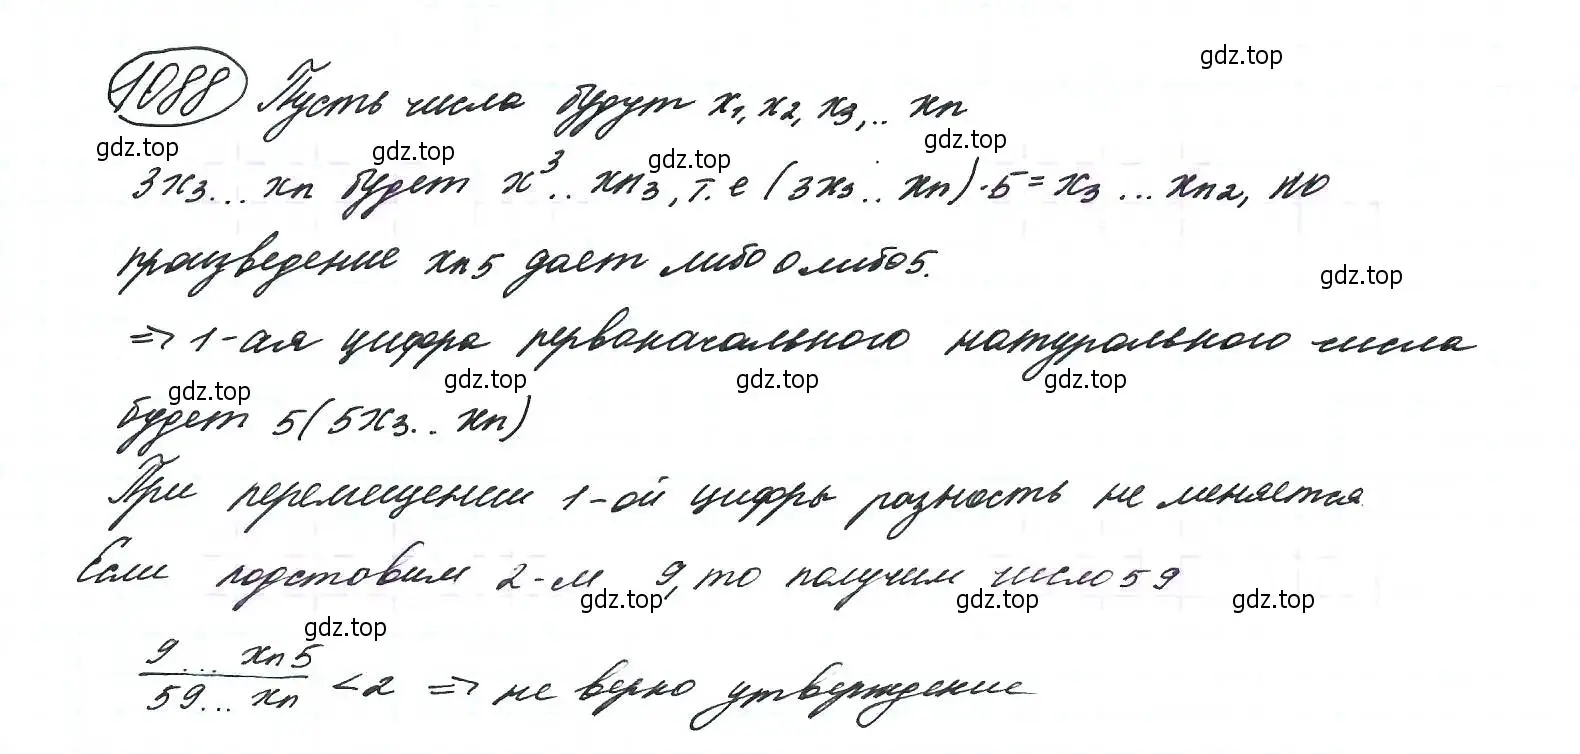 gdz.top
1088 Пусть числа будут x₁, x₂, x₃,.. xn
gdz.top gdz.top gdz.top gdz.top
3x₃... xn будет x³.. xn₃, т.е (3x₃.. xn)·5 = x₃ ... xn₂, но
произведение xn5 дает либо 0 либо 5.
gdz.top
=> 1-ая цифра первоначального натурального числа
gdz.top gdz.top gdz.top gdz.top
будет 5(5x₃.. xn)
При перемещении 1-ой цифры разность не меняется
Если подставим 2-м 9, то получим число 59
gdz.top gdz.top gdz.top
gdz.top
9... xn5
59... xn < 2 => не верно утверждение